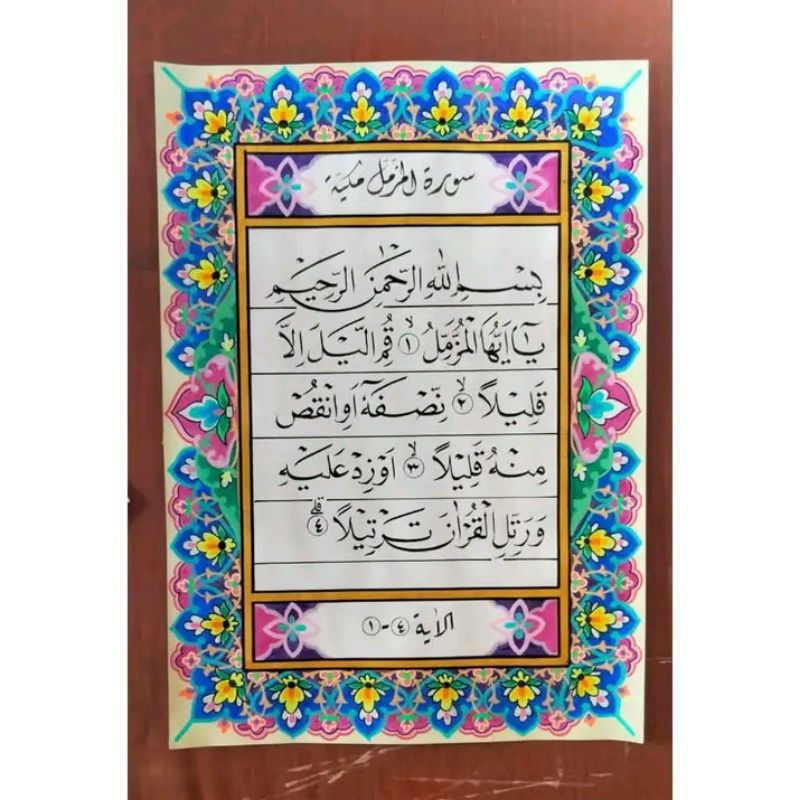 سورة المزّمّل مكيّة
بِسْمِ اللهِ الرَّحْمٰنِ الرَّحِيْمِ
يٰٓاَيُّهَا الْمُزَّمِّلُ ۙ ١ قُمِ الَّيْلَ اِلَّا
قَلِيْلًا ۙ ٢ نِّصْفَهٗٓ اَوِ انْقُصْ
مِنْهُ قَلِيْلًا ۙ ٣ اَوْ زِدْ عَلَيْهِ
وَرَتِّلِ الْقُرْاٰنَ تَرْتِيْلًا ۗ ٤
الاية ٤-١